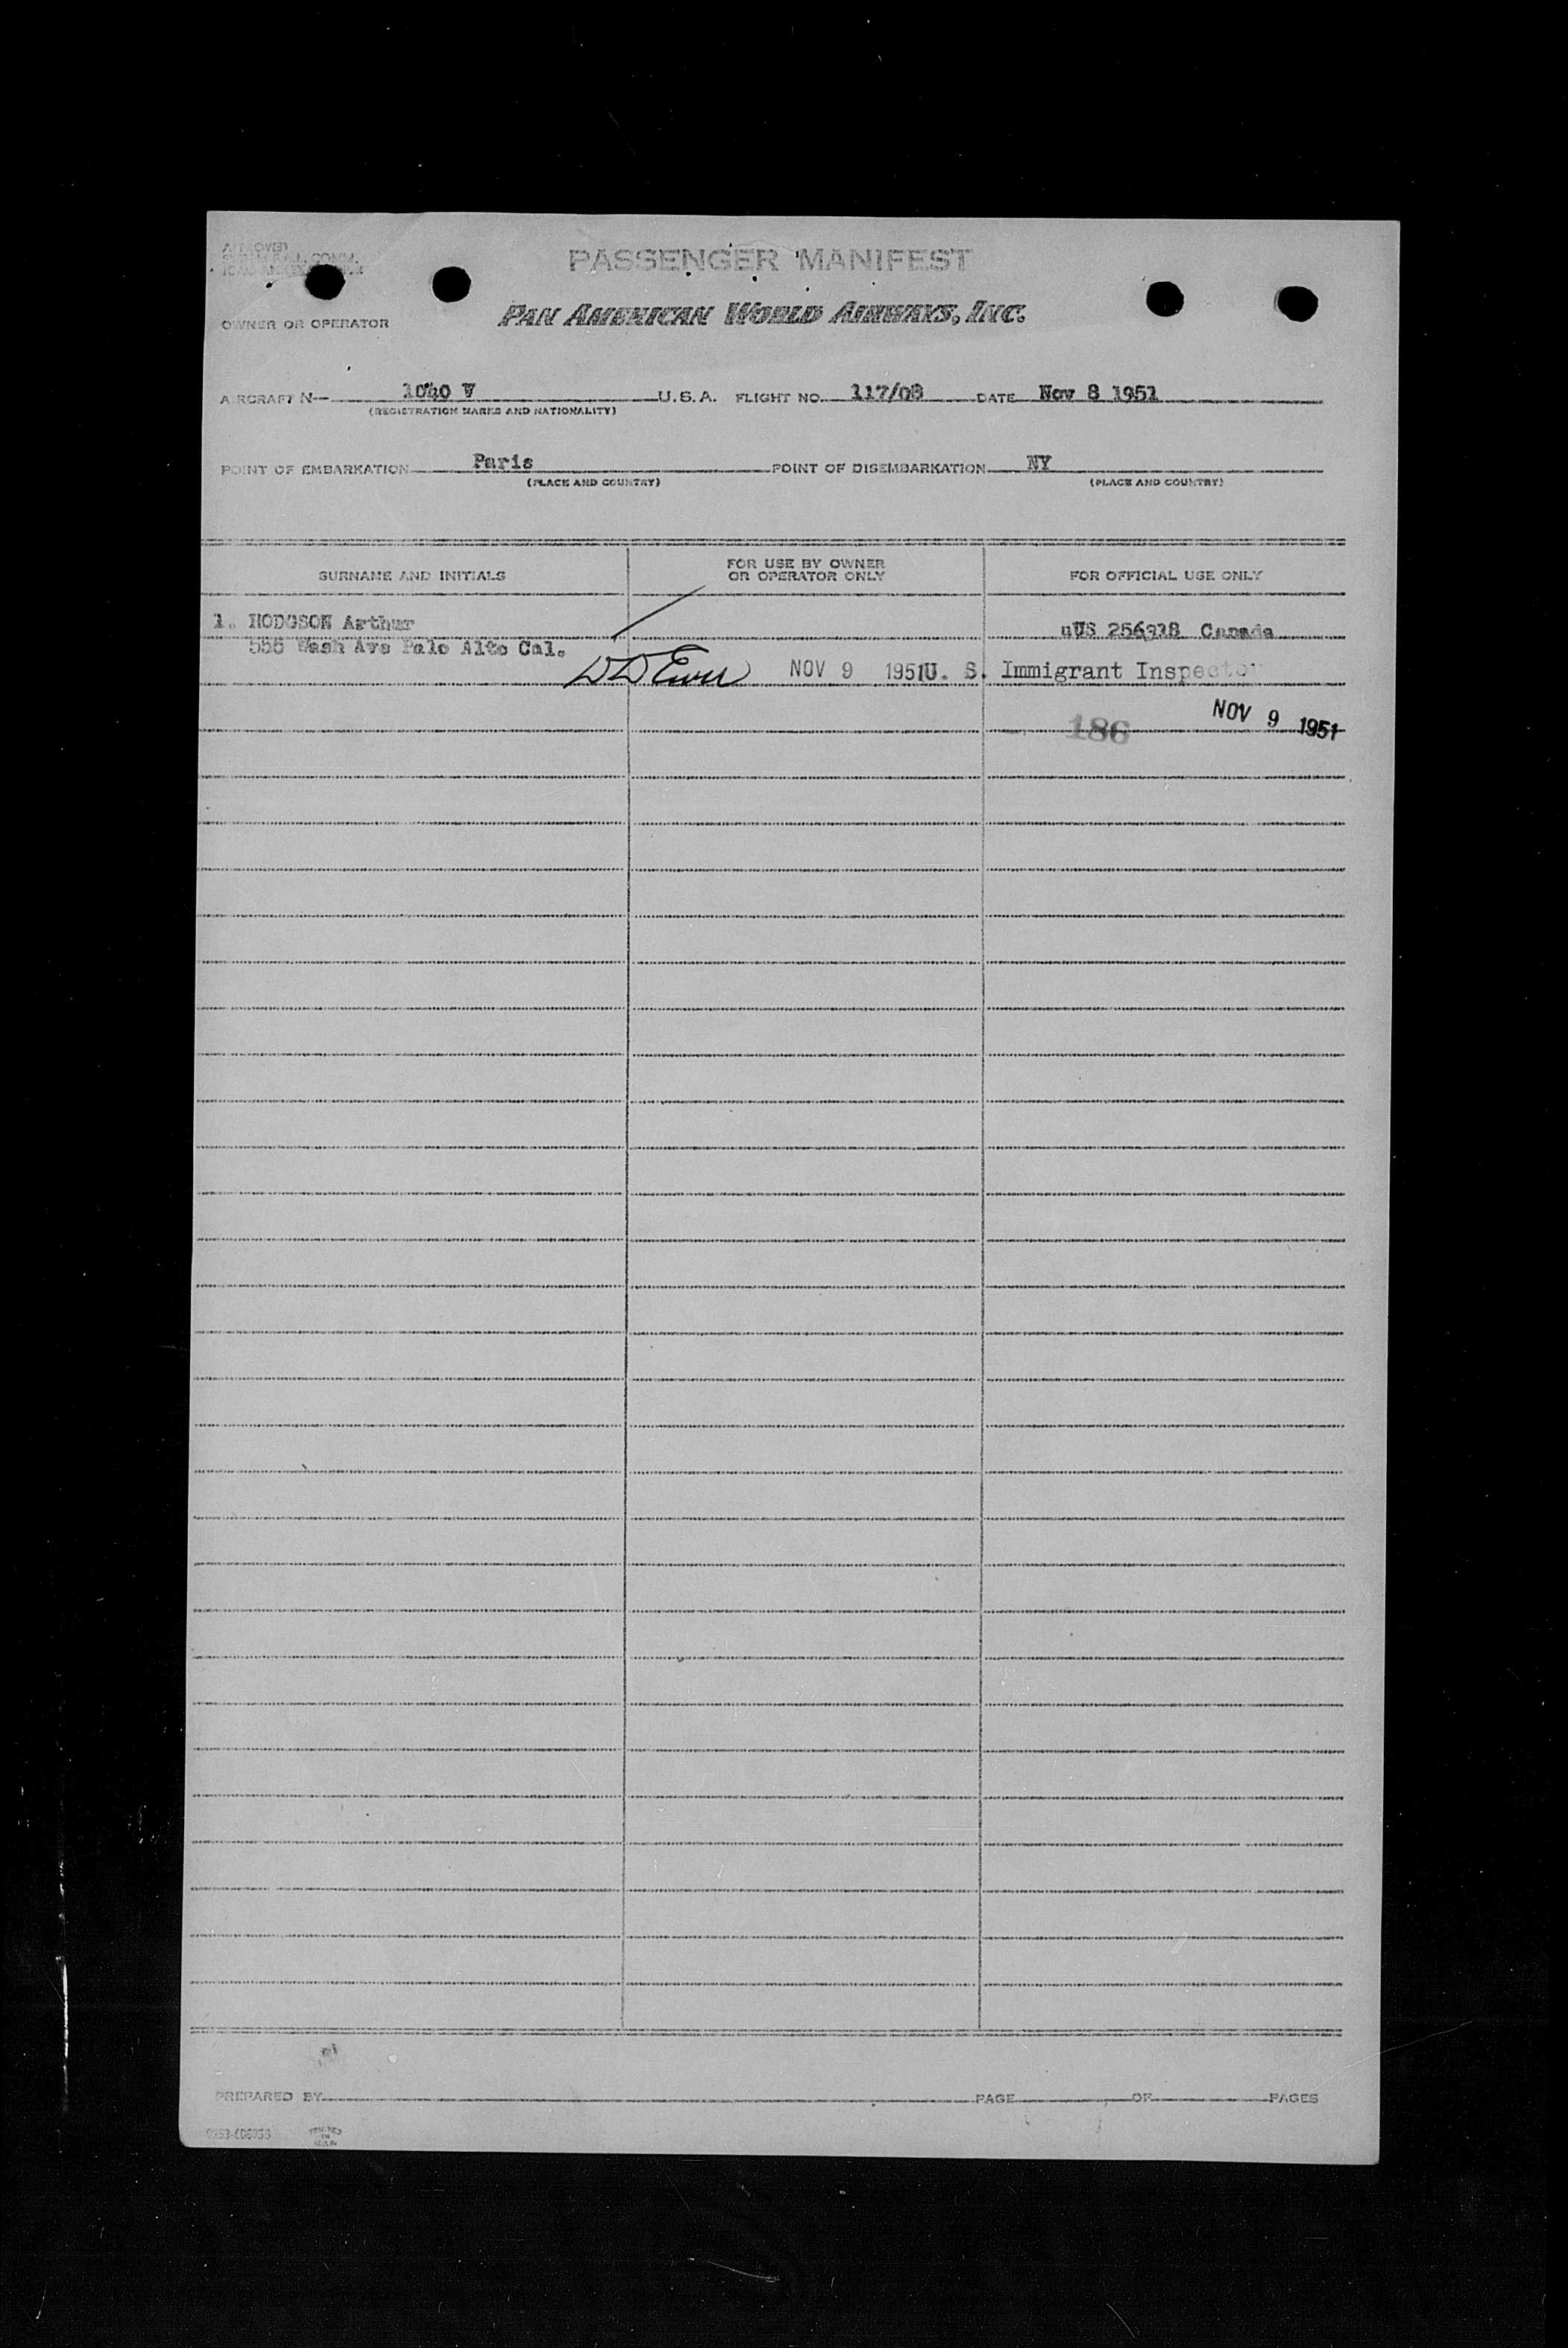 APPROVED
PASSENGER MANIFEST
OWNER OR OPERATOR
PAN AMERICAN WORLD AIRWAYS, INC.
AIRCRAFT N— 1040 V U.S.A. FLIGHT NO. 117/08 DATE Nov 8 1951
(REGISTRATION MARKS AND NATIONALITY)
POINT OF EMBARKATION Paris POINT OF DISEMBARKATION NY
(PLACE AND COUNTRY) (PLACE AND COUNTRY)
SURNAME AND INITIALS FOR USE BY OWNER OR OPERATOR ONLY FOR OFFICIAL USE ONLY
1. HODGSON Arthur
uUS 256318 Canada
555 Wash Ave Palo Alto Cal.
NOV 9 1951 U. S. Immigrant Inspector
186 NOV 9 1951
PREPARED BY PAGE OF PAGES
PRINTED
IN
U.S.A.